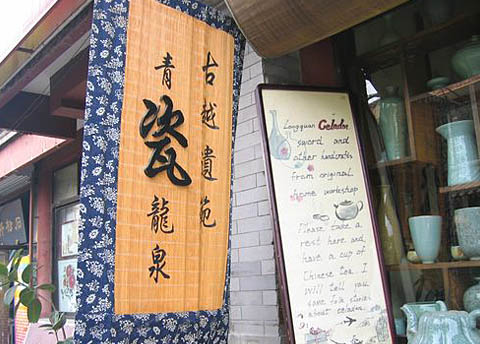 古越遺范
青瓷龍泉
Longquan Celadon
sword and
other handcrafts
from original
home workshop
Please take a
rest here and
have a cup of
Chinese tea. I
will tell you
some folk stories
about celadon.